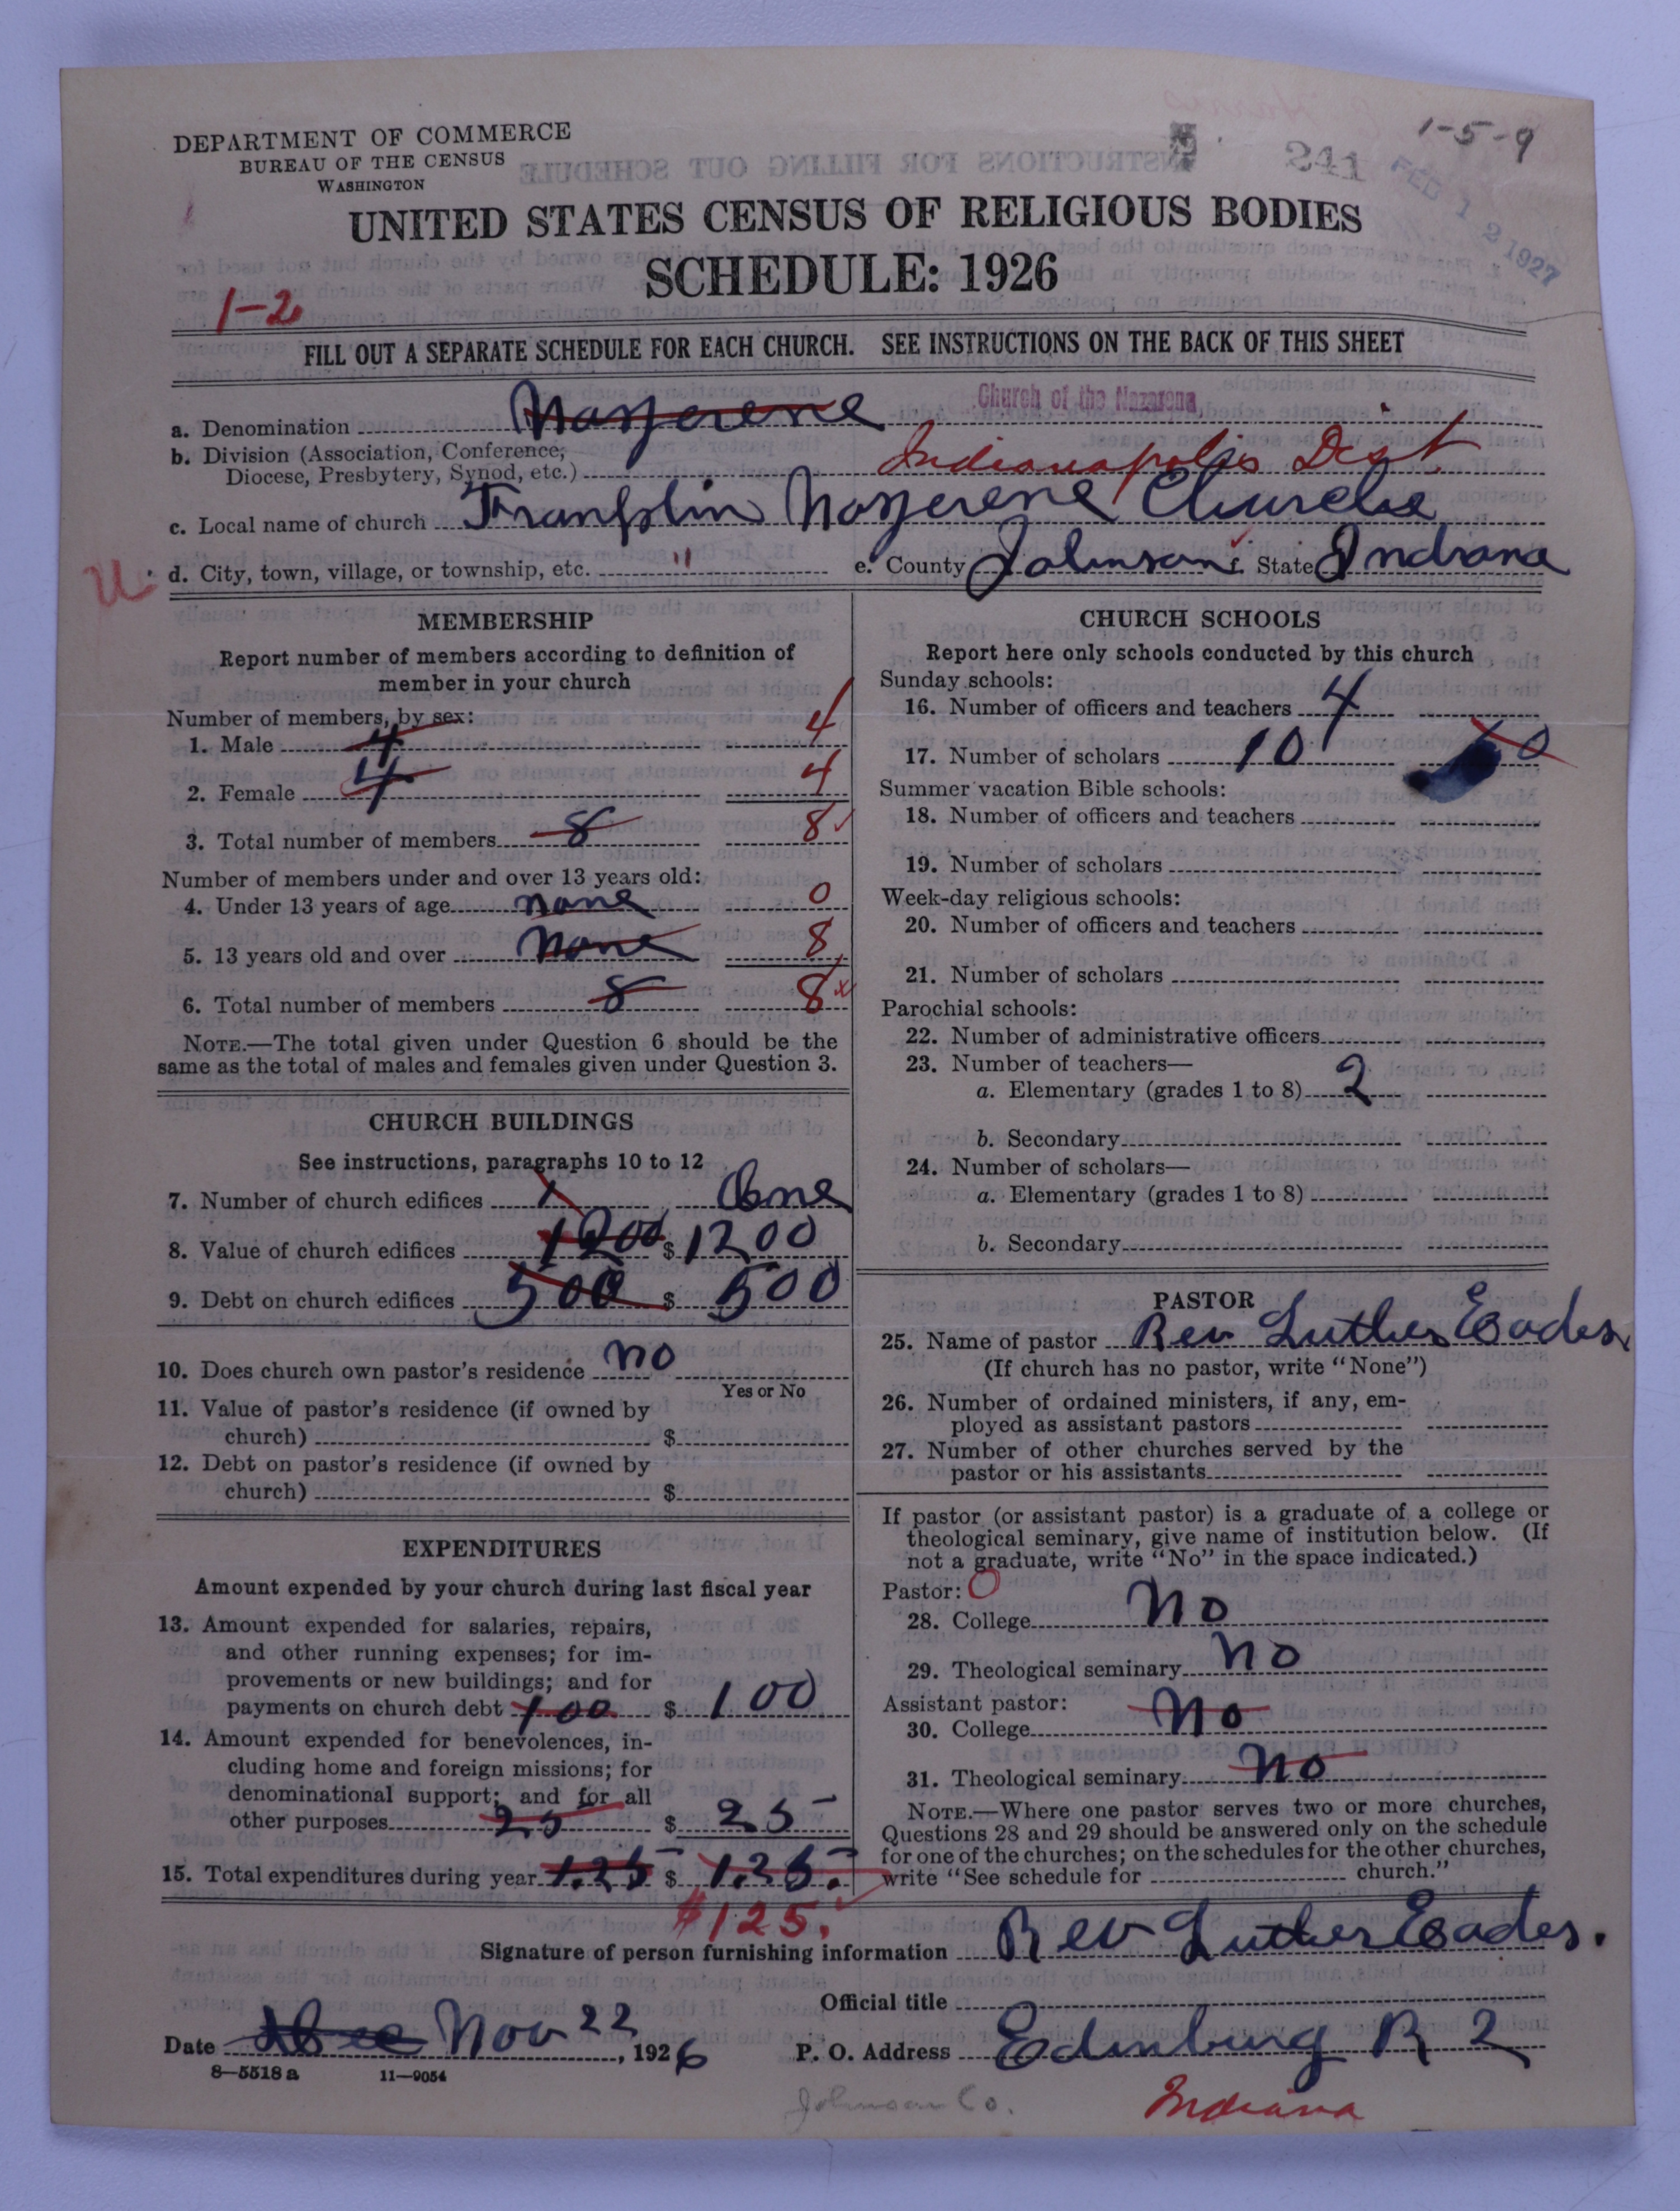 DEPARTMENT OF COMMERCE
BUREAU OF THE CENSUS
WASHINGTON
1-5-9
241
FEB 12 1927
UNITED STATES CENSUS OF RELIGIOUS BODIES
SCHEDULE: 1926
1-2
FILL OUT A SEPARATE SCHEDULE FOR EACH CHURCH. SEE INSTRUCTIONS ON THE BACK OF THIS SHEET
a. Denomination Nazzerene Church of the Nazarene
b. Division (Association, Conference,
Diocese, Presbytery, Synod, etc.) Indianapolis Dist
c. Local name of church Franklin Nazzerene Church
d. City, town, village, or township, etc. " e. County Johnson f. State Indiana
MEMBERSHIP
Report number of members according to definition of
member in your church
Number of members, by sex:
1. Male 4 4
2. Female 4 4
3. Total number of members 8 8
Number of members under and over 13 years old:
4. Under 13 years of age none 0
5. 13 years old and over None 8
6. Total number of members 8 8
NOTE.—The total given under Question 6 should be the
same as the total of males and females given under Question 3.
CHURCH BUILDINGS
See instructions, paragraphs 10 to 12
7. Number of church edifices 1 One
8. Value of church edifices 1200 $ 1200
9. Debt on church edifices 500 $ 500
10. Does church own pastor's residence no
Yes or No
11. Value of pastor's residence (if owned by
church) $
12. Debt on pastor's residence (if owned by
church) $
EXPENDITURES
Amount expended by your church during last fiscal year
13. Amount expended for salaries, repairs,
and other running expenses; for im-
provements or new buildings; and for
payments on church debt 100 $ 100
14. Amount expended for benevolences, in-
cluding home and foreign missions; for
denominational support; and for all
other purposes 25 $ 25
15. Total expenditures during year 125 $ 125.
$125.
CHURCH SCHOOLS
Report here only schools conducted by this church
Sunday schools:
16. Number of officers and teachers 4
17. Number of scholars 10
Summer vacation Bible schools:
18. Number of officers and teachers
19. Number of scholars
Week-day religious schools:
20. Number of officers and teachers
21. Number of scholars
Parochial schools:
22. Number of administrative officers
23. Number of teachers—
a. Elementary (grades 1 to 8) 2
b. Secondary
24. Number of scholars—
a. Elementary (grades 1 to 8)
b. Secondary
PASTOR
25. Name of pastor Rev Luther Eades
(If church has no pastor, write "None")
26. Number of ordained ministers, if any, em-
ployed as assistant pastors
27. Number of other churches served by the
pastor or his assistants
If pastor (or assistant pastor) is a graduate of a college or
theological seminary, give name of institution below. (If
not a graduate, write "No" in the space indicated.)
Pastor: 0
28. College No
29. Theological seminary No
Assistant pastor:
30. College No
31. Theological seminary No
NOTE.—Where one pastor serves two or more churches,
Questions 28 and 29 should be answered only on the schedule
for one of the churches; on the schedules for the other churches,
write "See schedule for church."
Signature of person furnishing information Rev Luther Eades.
Official title
Date Dec Nov 22, 1926 P. O. Address Edinburg R 2
8—5518 a 11—9054
Johnson Co. Indiana